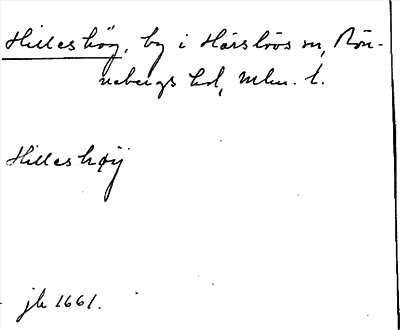 Hilleshög, by i Härslövs sn, Rön-
nebergs hd, Mlm. l.
Hilleshøÿ
jb 1661.